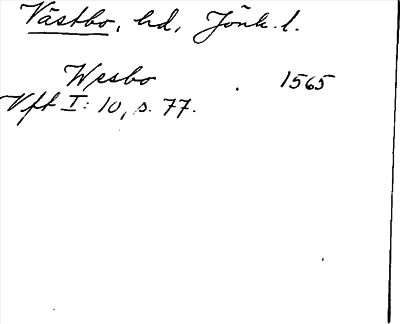 Västbo, hd, Jönk. l.
Wesbo . 1565
Vft I: 10, s. 77.